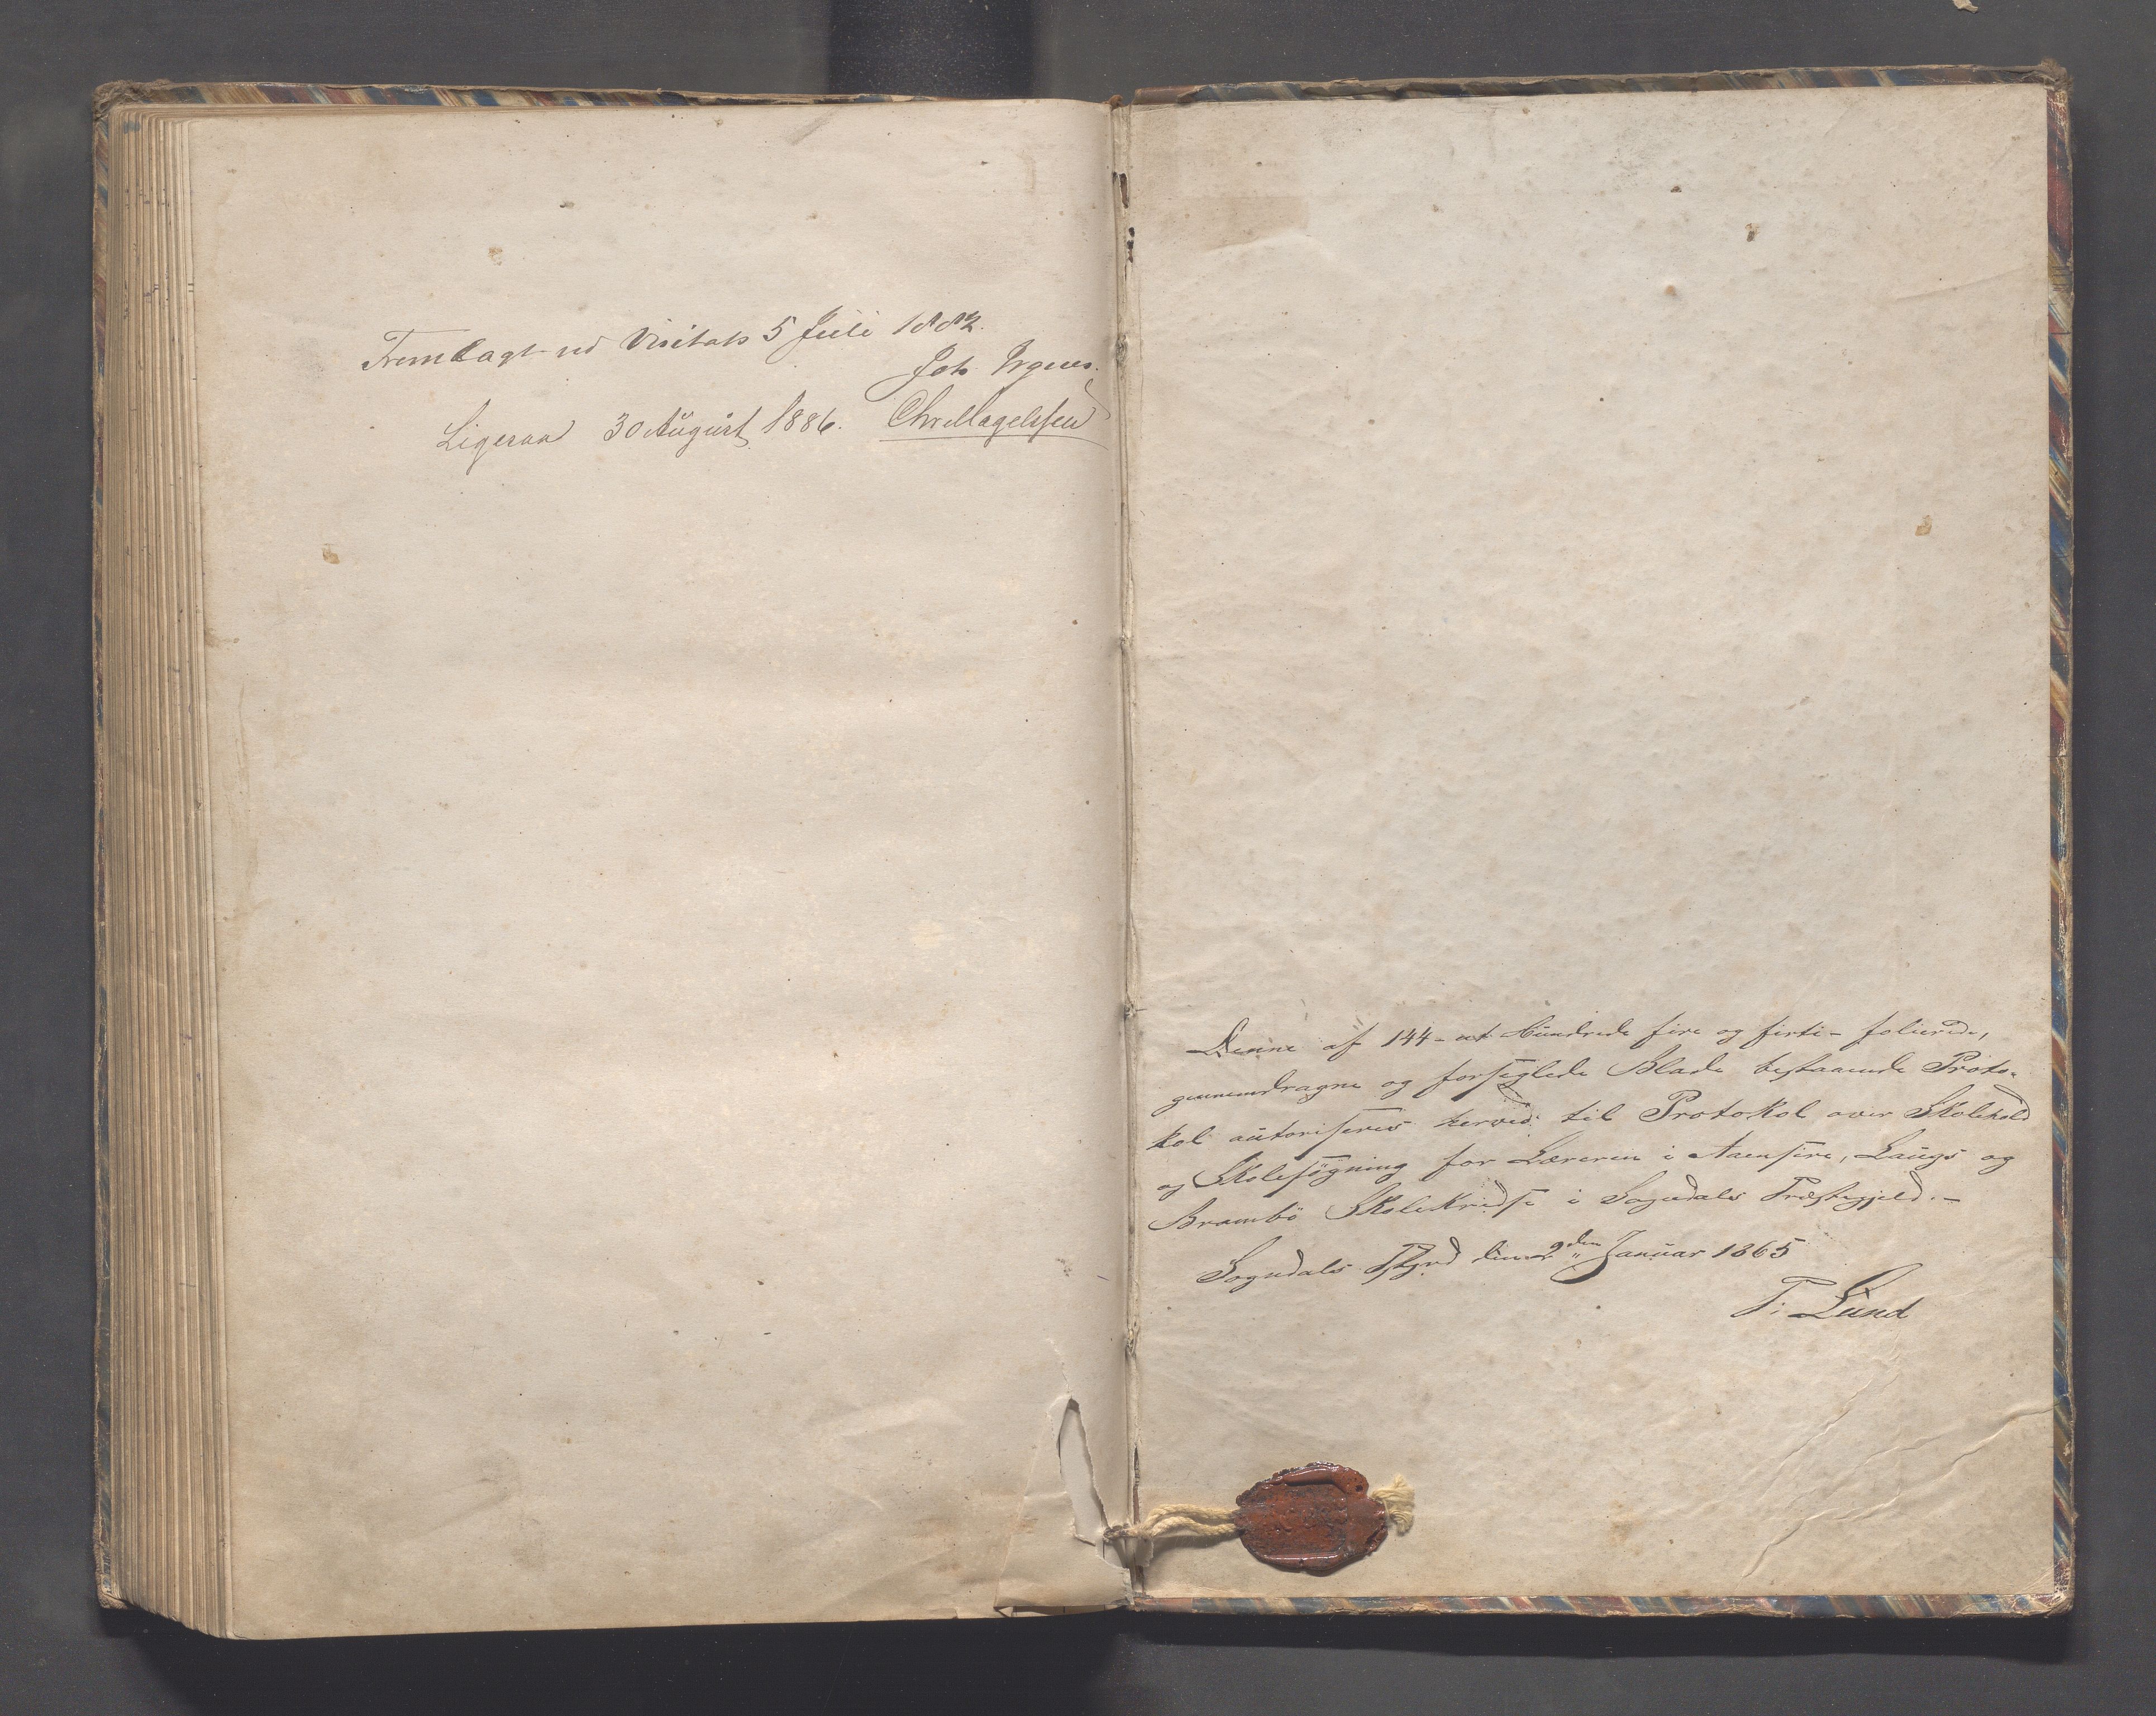 Fremlagt ved Visitats 5 Juli 1882.
Joh Irgens.
Ligesaa 30 August 1886. Chr. Magelssen
Denne af 144 - et Hundrede fire og firti - folierede,
gennemdragne og forseglede Blade bestaaende Proto-
kol autoriseres herved til Protokol over Skolehold
og Skolesøgning for Læreren i Aaensire, Laugs og
Brambö Skolekredse i Sogndals Præstegjeld. -
Sogndals Pstgrd den 2den Januar 1865
T. Lund